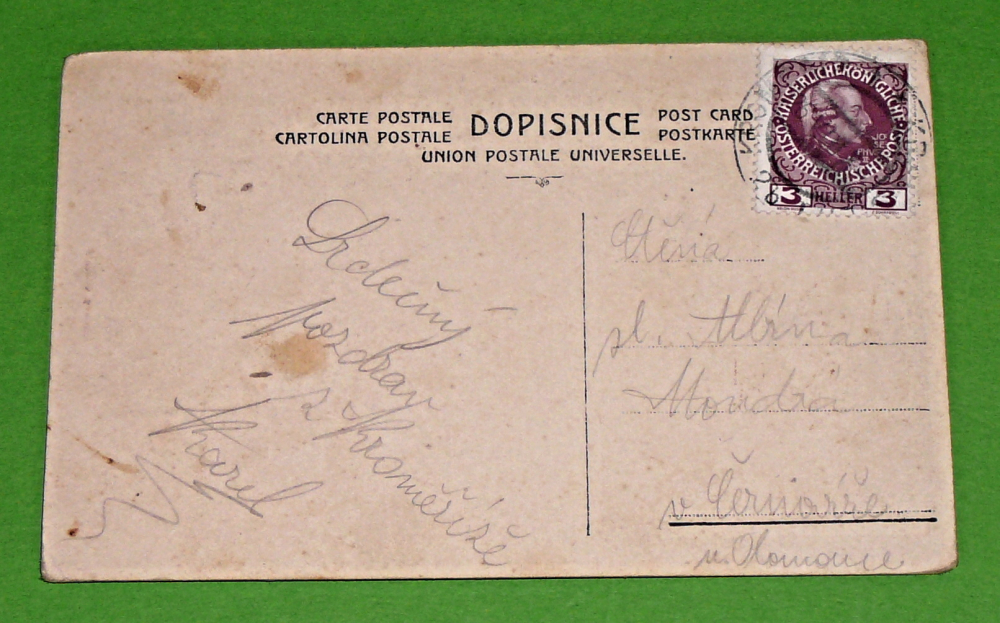 CARTE POSTALE
CARTOLINA POSTALE
DOPISNICE
POST CARD
POSTKARTE
UNION POSTALE UNIVERSELLE.
KAISERLICHE KÖNIGLICHE
ÖSTERREICHISCHE POST
3 HELLER 3
Srdečný
pozdrav
z Kroměříže
Karel
Ctěná
sl. Albína
Moudrá
v
u Olomouce